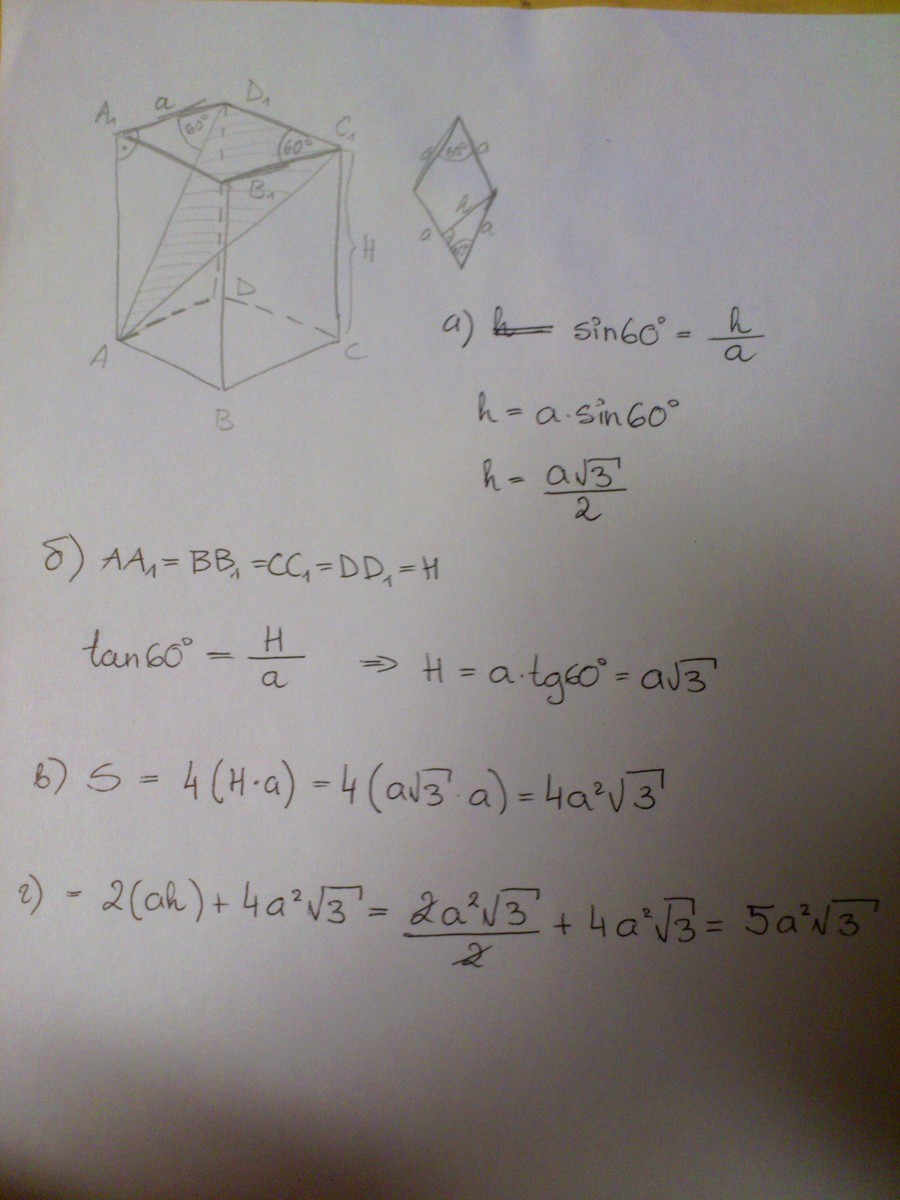 A₁ a D₁ C₁ B₁ 60° 60° H
A D C B
a 60° a
h a a 60°
а) sin60° = h/a
h = a·sin60°
h = a√3/2
б) AA₁ = BB₁ = CC₁ = DD₁ = H
tan60° = H/a ⇒ H = a·tg60° = a√3
в) S = 4(H·a) = 4(a√3·a) = 4a²√3
г) = 2(ah) + 4a²√3 = 2a²√3/2 + 4a²√3 = 5a²√3